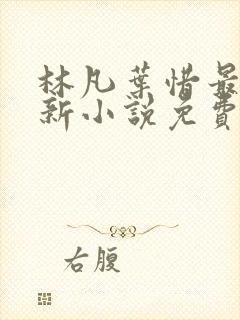 林凡葉惜最
新小說免費
右腹